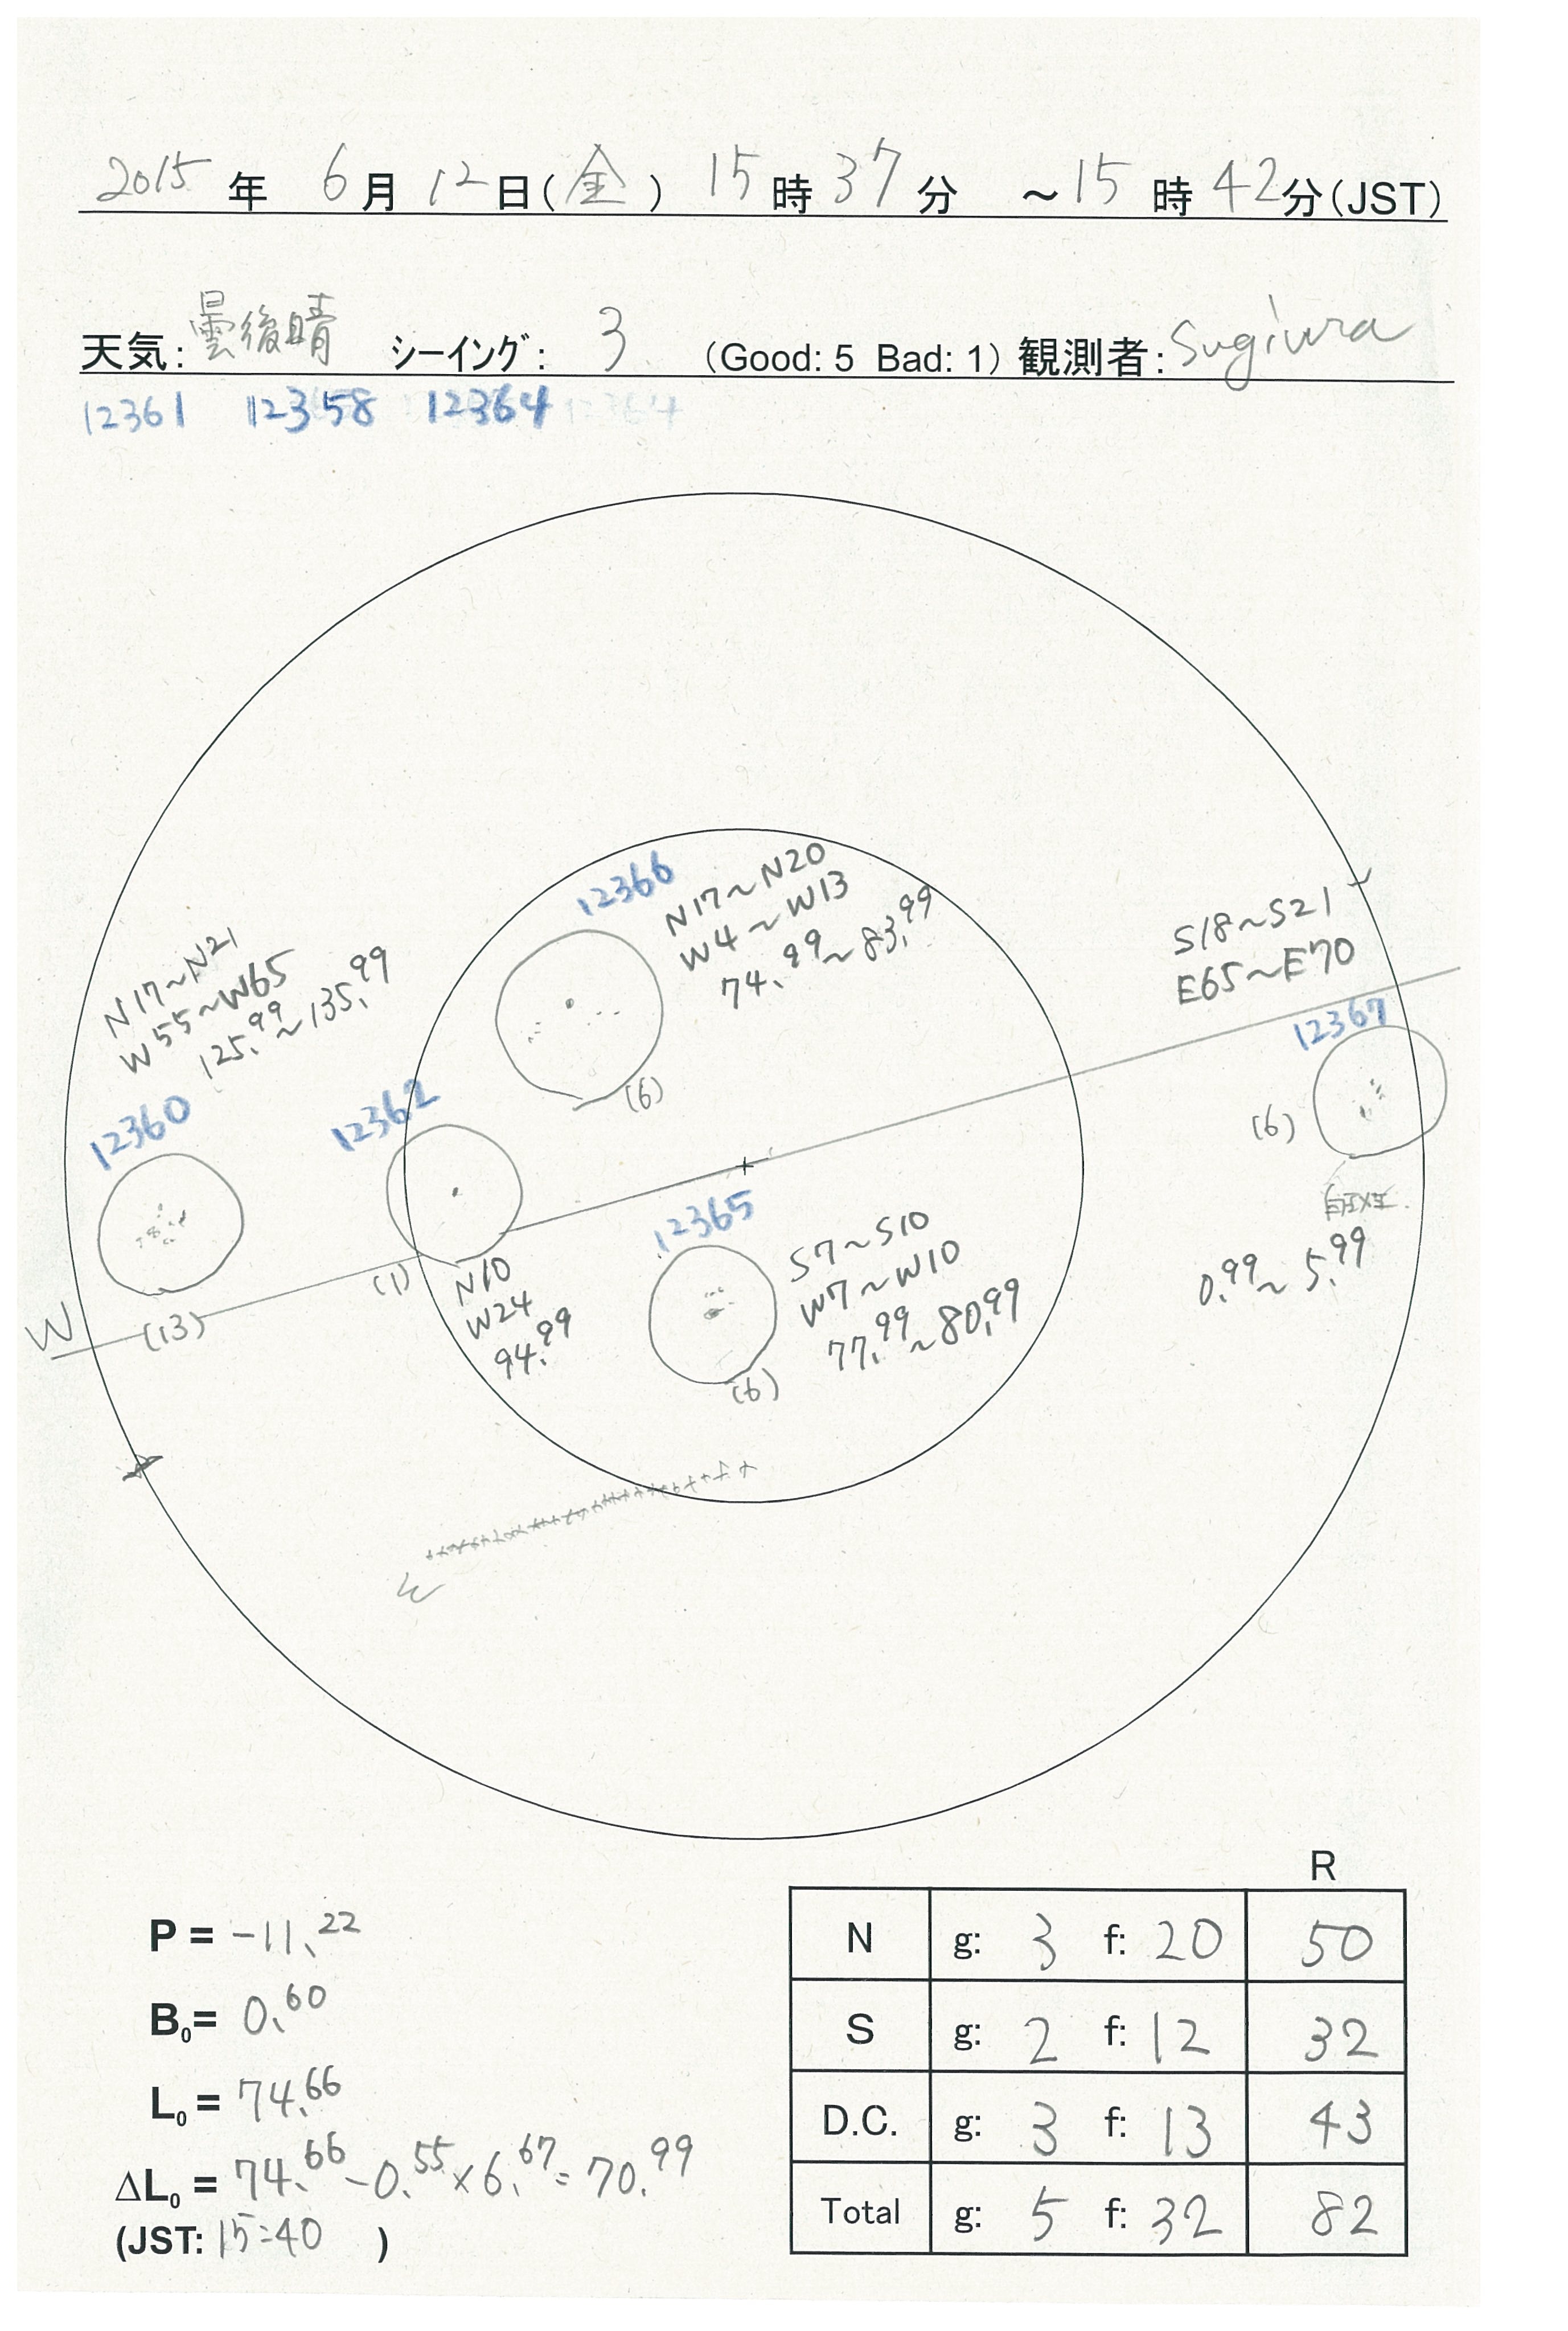 2015 年 6月 12日(金) 15時 37分 ~15時 42分(JST)
天気: 曇後晴 シーイング: 3 (Good: 5 Bad: 1) 観測者: Sugiura
12361 12358 12364 12364
12366
N17~N20
W4~W13
74.99~83.99
(6)
S18~S21
E65~E70
12367
(6)
0.99~5.99
N17~N21
W55~W65
125.99~135.99
12360
(13)
W
12362
(1)
N10
W24
94.99
12365
S7~S10
W7~W10
77.99~80.99
(6)
P = -11.22
B0= 0.60
L0 = 74.66
ΔL0 = 74.66-0.55×6.67=70.99
(JST: 15:40 )
R
N g: 3 f: 20 50
S g: 2 f: 12 32
D.C. g: 3 f: 13 43
Total g: 5 f: 32 82